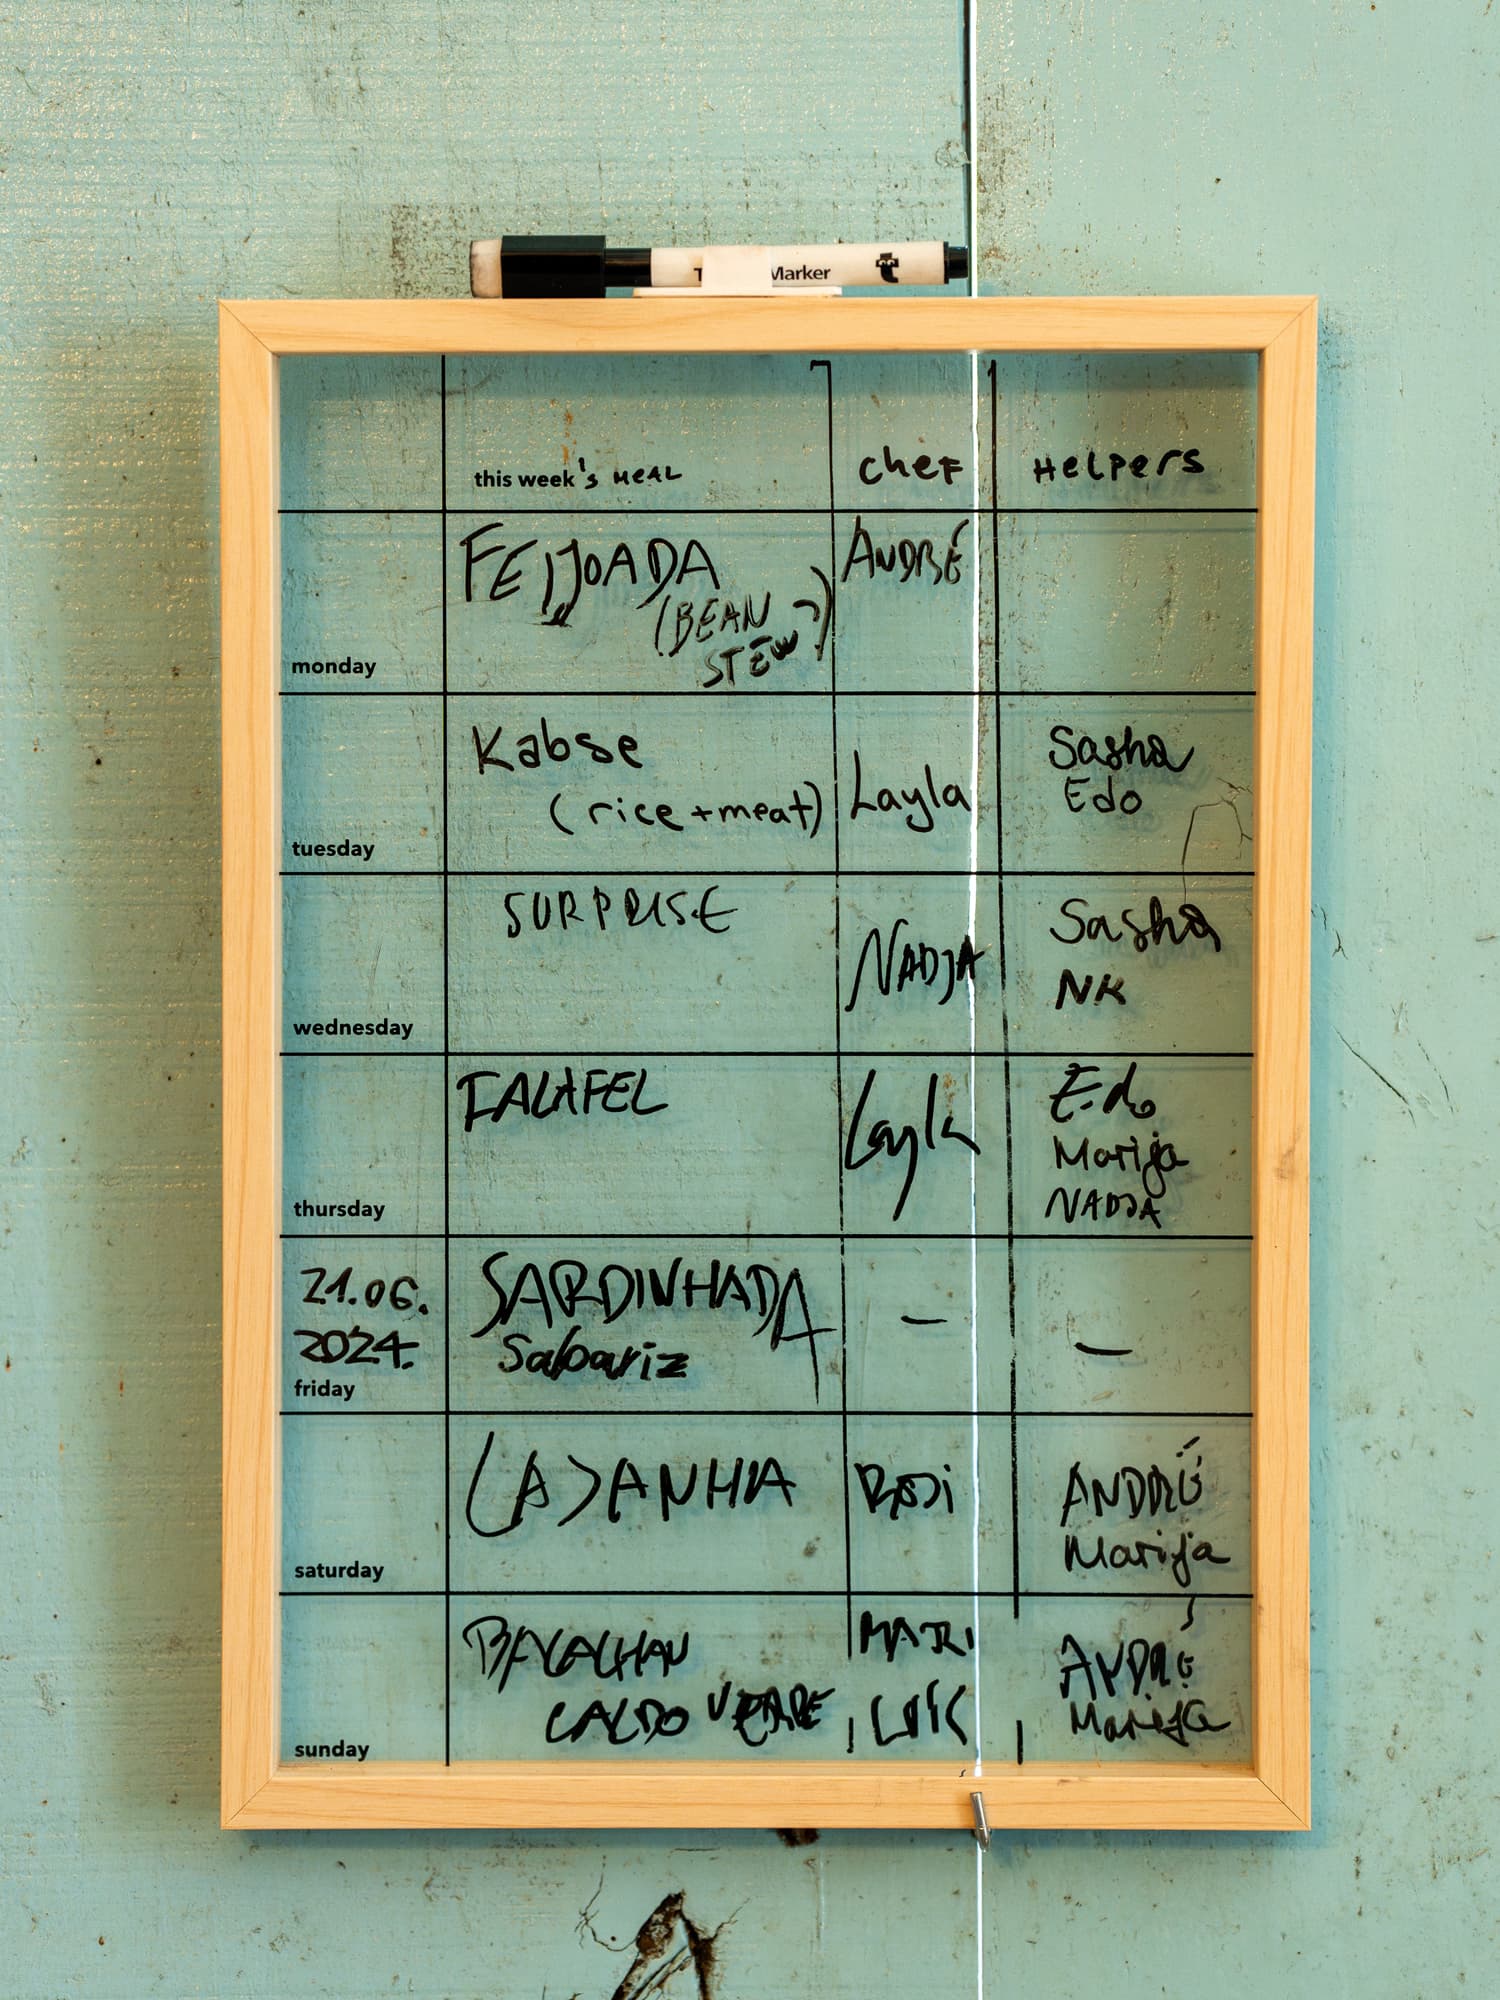 Marker
this week's MEAL chef Helpers
FEIJOADA ANDRÉ
(BEAN
STEW)
monday
Kabse Sasha
(rice + meat) Layla Edo
tuesday
SURPRISE Sasha
NADJA NK
wednesday
FALAFEL Layla Edo
Marija
NADJA
thursday
21.06. SARDINHADA – –
2024. Sabariz
friday
LASANHA ANDRÉ
Marija
saturday
BACALHAU ANDRÉ
CALDO VERDE Marija
sunday